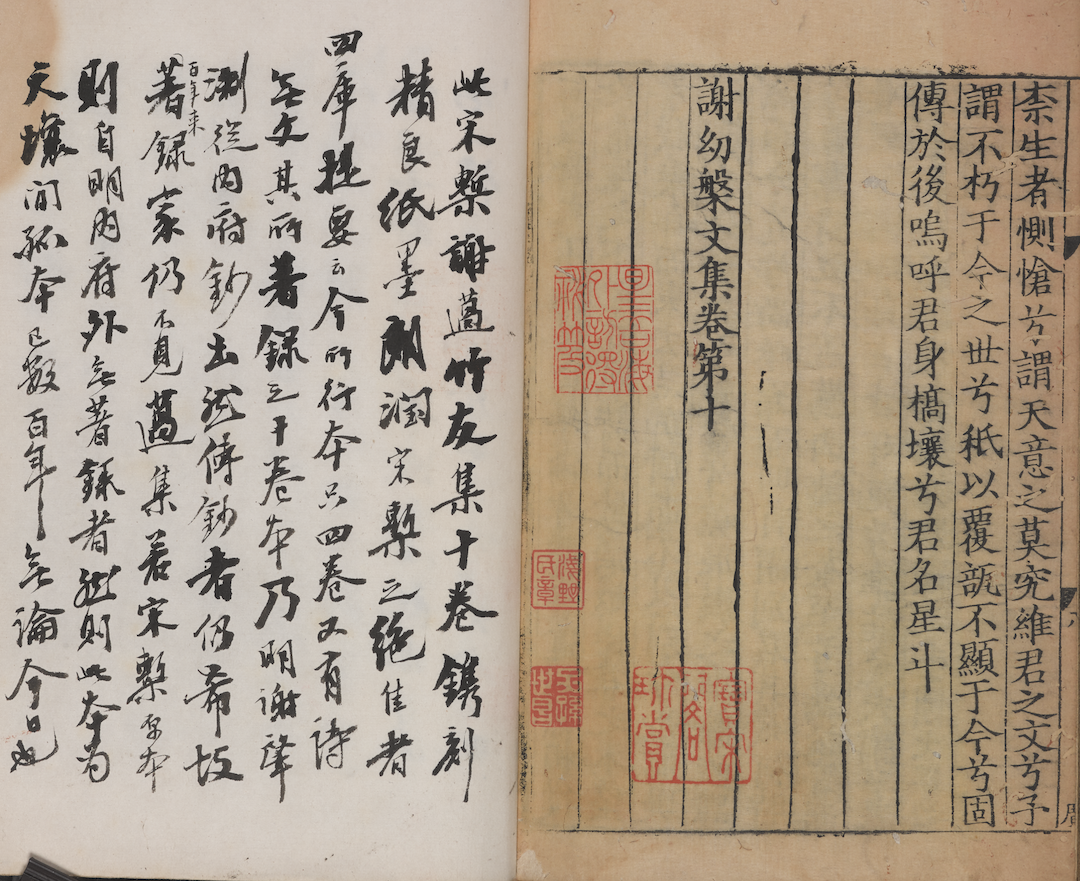 柰生者惻愴兮謂天意之莫究維君之文兮子
謂不朽于今之世兮秖以覆瓿不顯于今兮固
傳於後嗚呼君身槁壤兮君名星斗
謝幼槃文集卷第十
星吾海外訪得秘笈
此宋槧謝薖竹友集十卷鐫刻
精良紙墨朗潤宋槧之絕佳者
四庫提要云今所行本只四卷又有詩
無文其所著錄之十卷本乃明謝肇
淛從內府鈔出然傳鈔者仍希故
百年来
著錄家仍不見薖集若宋槧原本
則自明內府外無著錄者然則此本為
天壤間孤本已數百年無論今日也